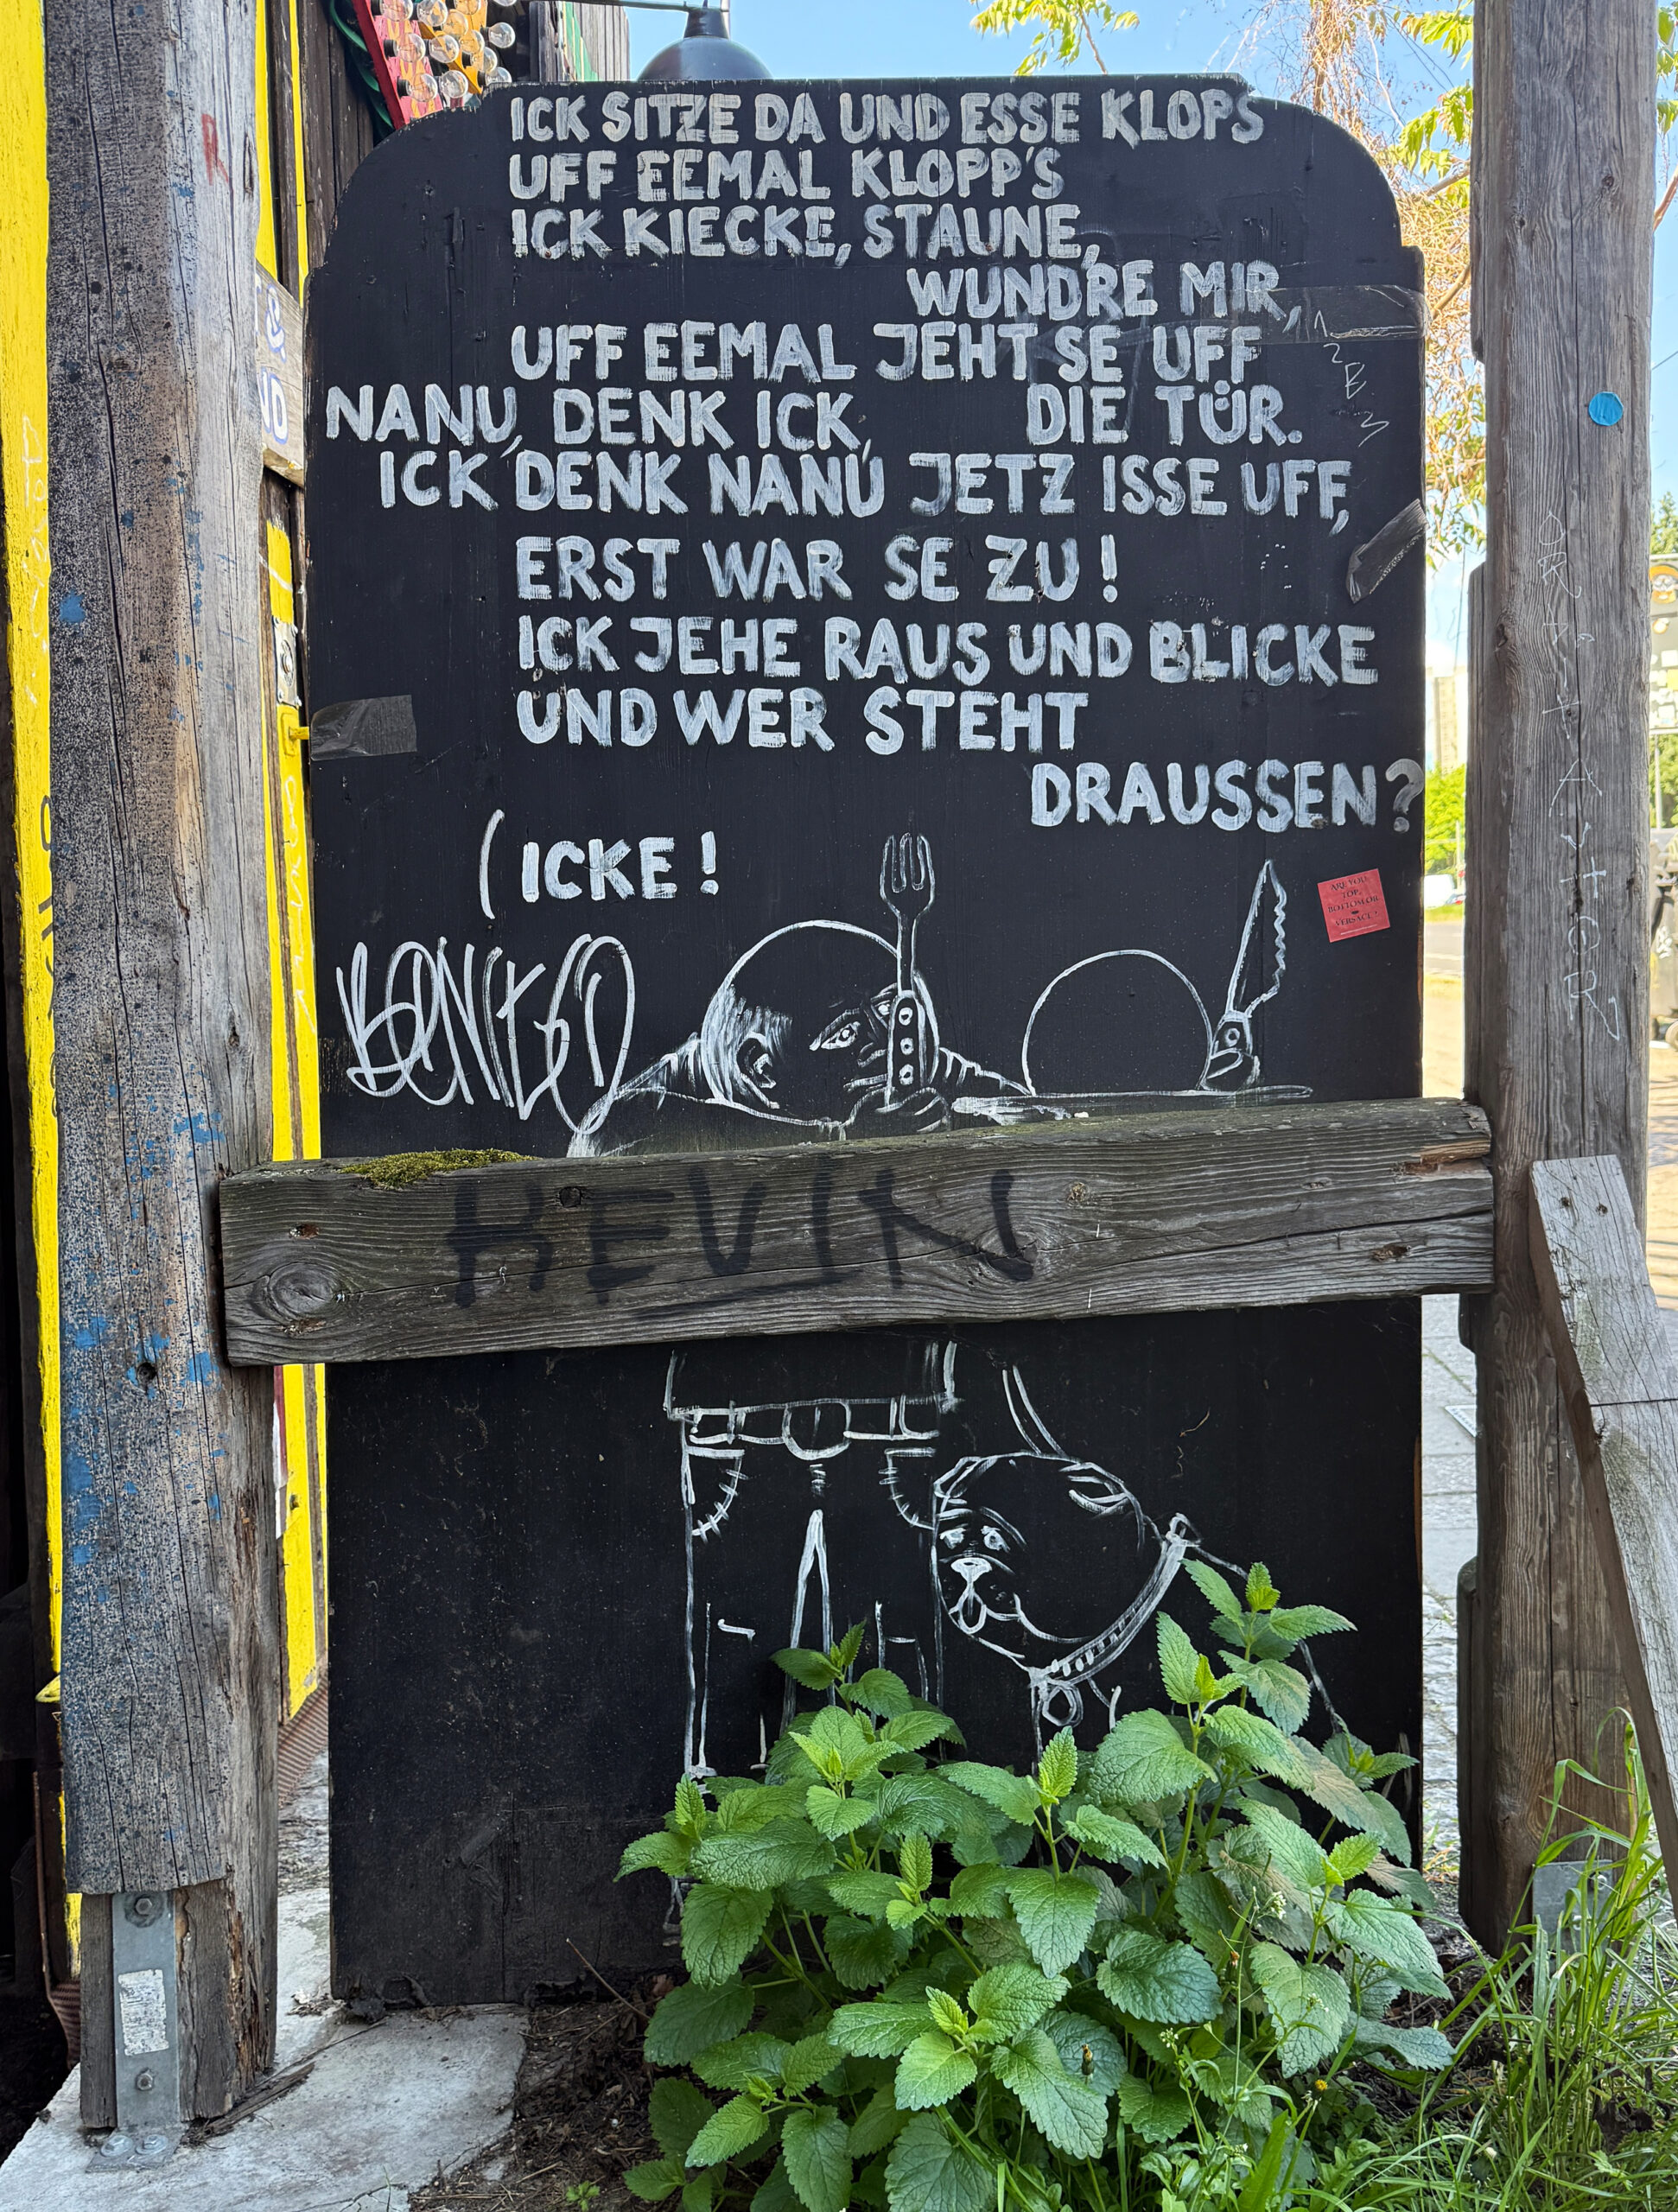 ICK SITZE DA UND ESSE KLOPS
UFF EEMAL KLOPP'S
ICK KIECKE, STAUNE,
WUNDRE MIR,
UFF EEMAL JEHT SE UFF
NANU, DENK ICK, DIE TÜR.
ICK DENK NANU JETZ ISSE UFF,
ERST WAR SE ZU!
ICK JEHE RAUS UND BLICKE
UND WER STEHT
DRAUSSEN?
(ICKE!
ARE YOU
TOP,
BOTTOM OR
VERSACE?
KEVIN